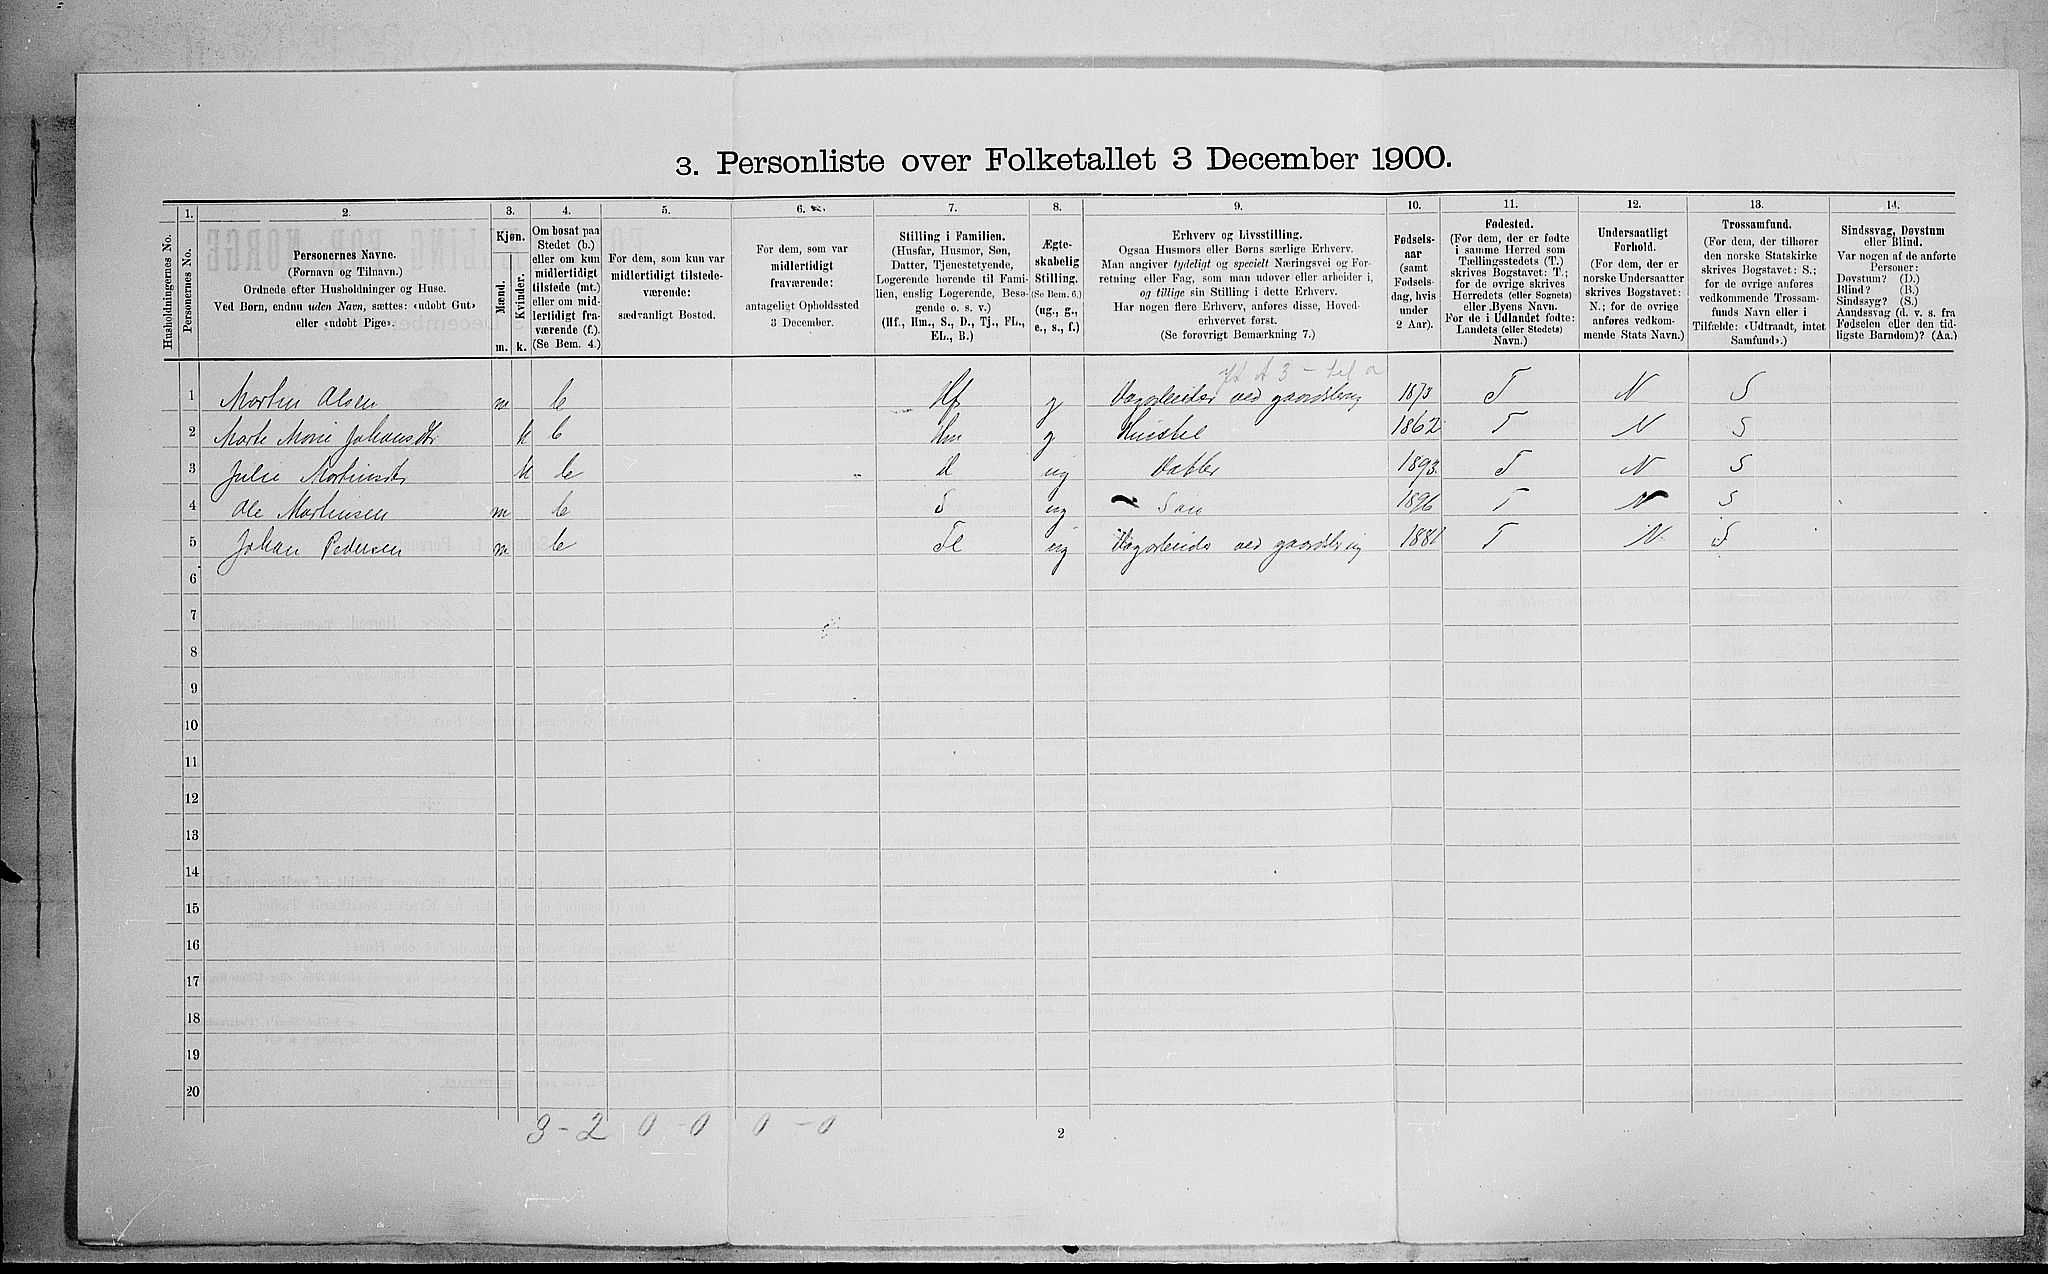 3. Personliste over Folketallet 3 December 1900.
1. 2. 3. 4. 5. 6. 7. 8. 9. 10. 11. 12. 13. 14.
Husholdningernes No.
Personernes No.
Personernes Navne.
(Fornavn og Tilnavn.)
Ordnede efter Husholdninger og Huse.
Ved Børn, endnu uden Navn, sættes: «udøbt Gut»
eller «udøbt Pige».
Kjøn.
Mænd.
Kvinder.
m. k.
Om bosat paa
Stedet (b.)
eller om kun
midlertidigt
tilstede (mt.)
eller om mid-
lertidigt fra-
værende (f.)
(Se Bem. 4.)
For dem, som kun var
midlertidigt tilstede-
værende:
sædvanligt Bosted.
For dem, som var
midlertidigt
fraværende:
antageligt Opholdssted
3 December.
Stilling i Familien.
(Husfar, Husmor, Søn,
Datter, Tjenestetyende,
Logerende hørende til Fami-
lien, enslig Logerende, Besø-
gende o. s. v.)
(Hf., Hm., S., D., Tj., FL.,
EL., B.)
Ægte-
skabelig
Stilling.
(Se Bem. 6.)
(ug., g.,
e., s., f.)
Erhverv og Livsstilling.
Ogsaa Husmors eller Børns særlige Erhverv.
Man angiver tydeligt og specielt Næringsvei og For-
retning eller Fag, som man udøver eller arbeider i,
og tillige sin Stilling i dette Erhverv.
Har nogen flere Erhverv, anføres disse, Hoved-
erhvervet først.
(Se forøvrigt Bemærkning 7.)
Fødsels-
aar
(samt
Fødsels-
dag, hvis
under
2 Aar).
Fødested.
(For dem, der er fødte
i samme Herred som
Tællingsstedets (T.)
skrives Bogstavet: T.;
for de øvrige skrives
Herredets (eller Sognets)
eller Byens Navn.
For de i Udlandet fødte:
Landets (eller Stedets)
Navn.)
Undersaatligt
Forhold.
(For dem, der er
norske Undersaatter
skrives Bogstavet:
N.; for de øvrige
anføres vedkom-
mende Stats Navn.)
Trossamfund.
(For dem, der tilhører
den norske Statskirke
skrives Bogstavet: S.;
for de øvrige anføres
vedkommende Trossam-
funds Navn eller i
Tilfælde: «Udtraadt, intet
Samfund».)
Sindssvag, Døvstum
eller Blind.
Var nogen af de anførte
Personer:
Døvstum? (D.)
Blind? (B.)
Sindssyg? (S.)
Aandssvag (d. v. s. fra
Fødselen eller den tid-
ligste Barndom)? (Aa.)
1 Martin Olsen m b Hf g Dagarbeider ved gaardsbrug 1873 T N S
2 Marte Marie Johansdtr k b Hm g Hustru 1862 T N S
3 Julie Martinsdtr k b D ug Datter 1893 T N S
4 Ole Martinsen m b S ug Søn 1896 T N S
5 Johan Pedersen m b FL ug Dagarbeider ved gaardsbrug 1881 T N S
6
7
8
9
10
11
12
13
14
15
16
17
18
19
20
3 - 2 0 - 0 0 - 0
2